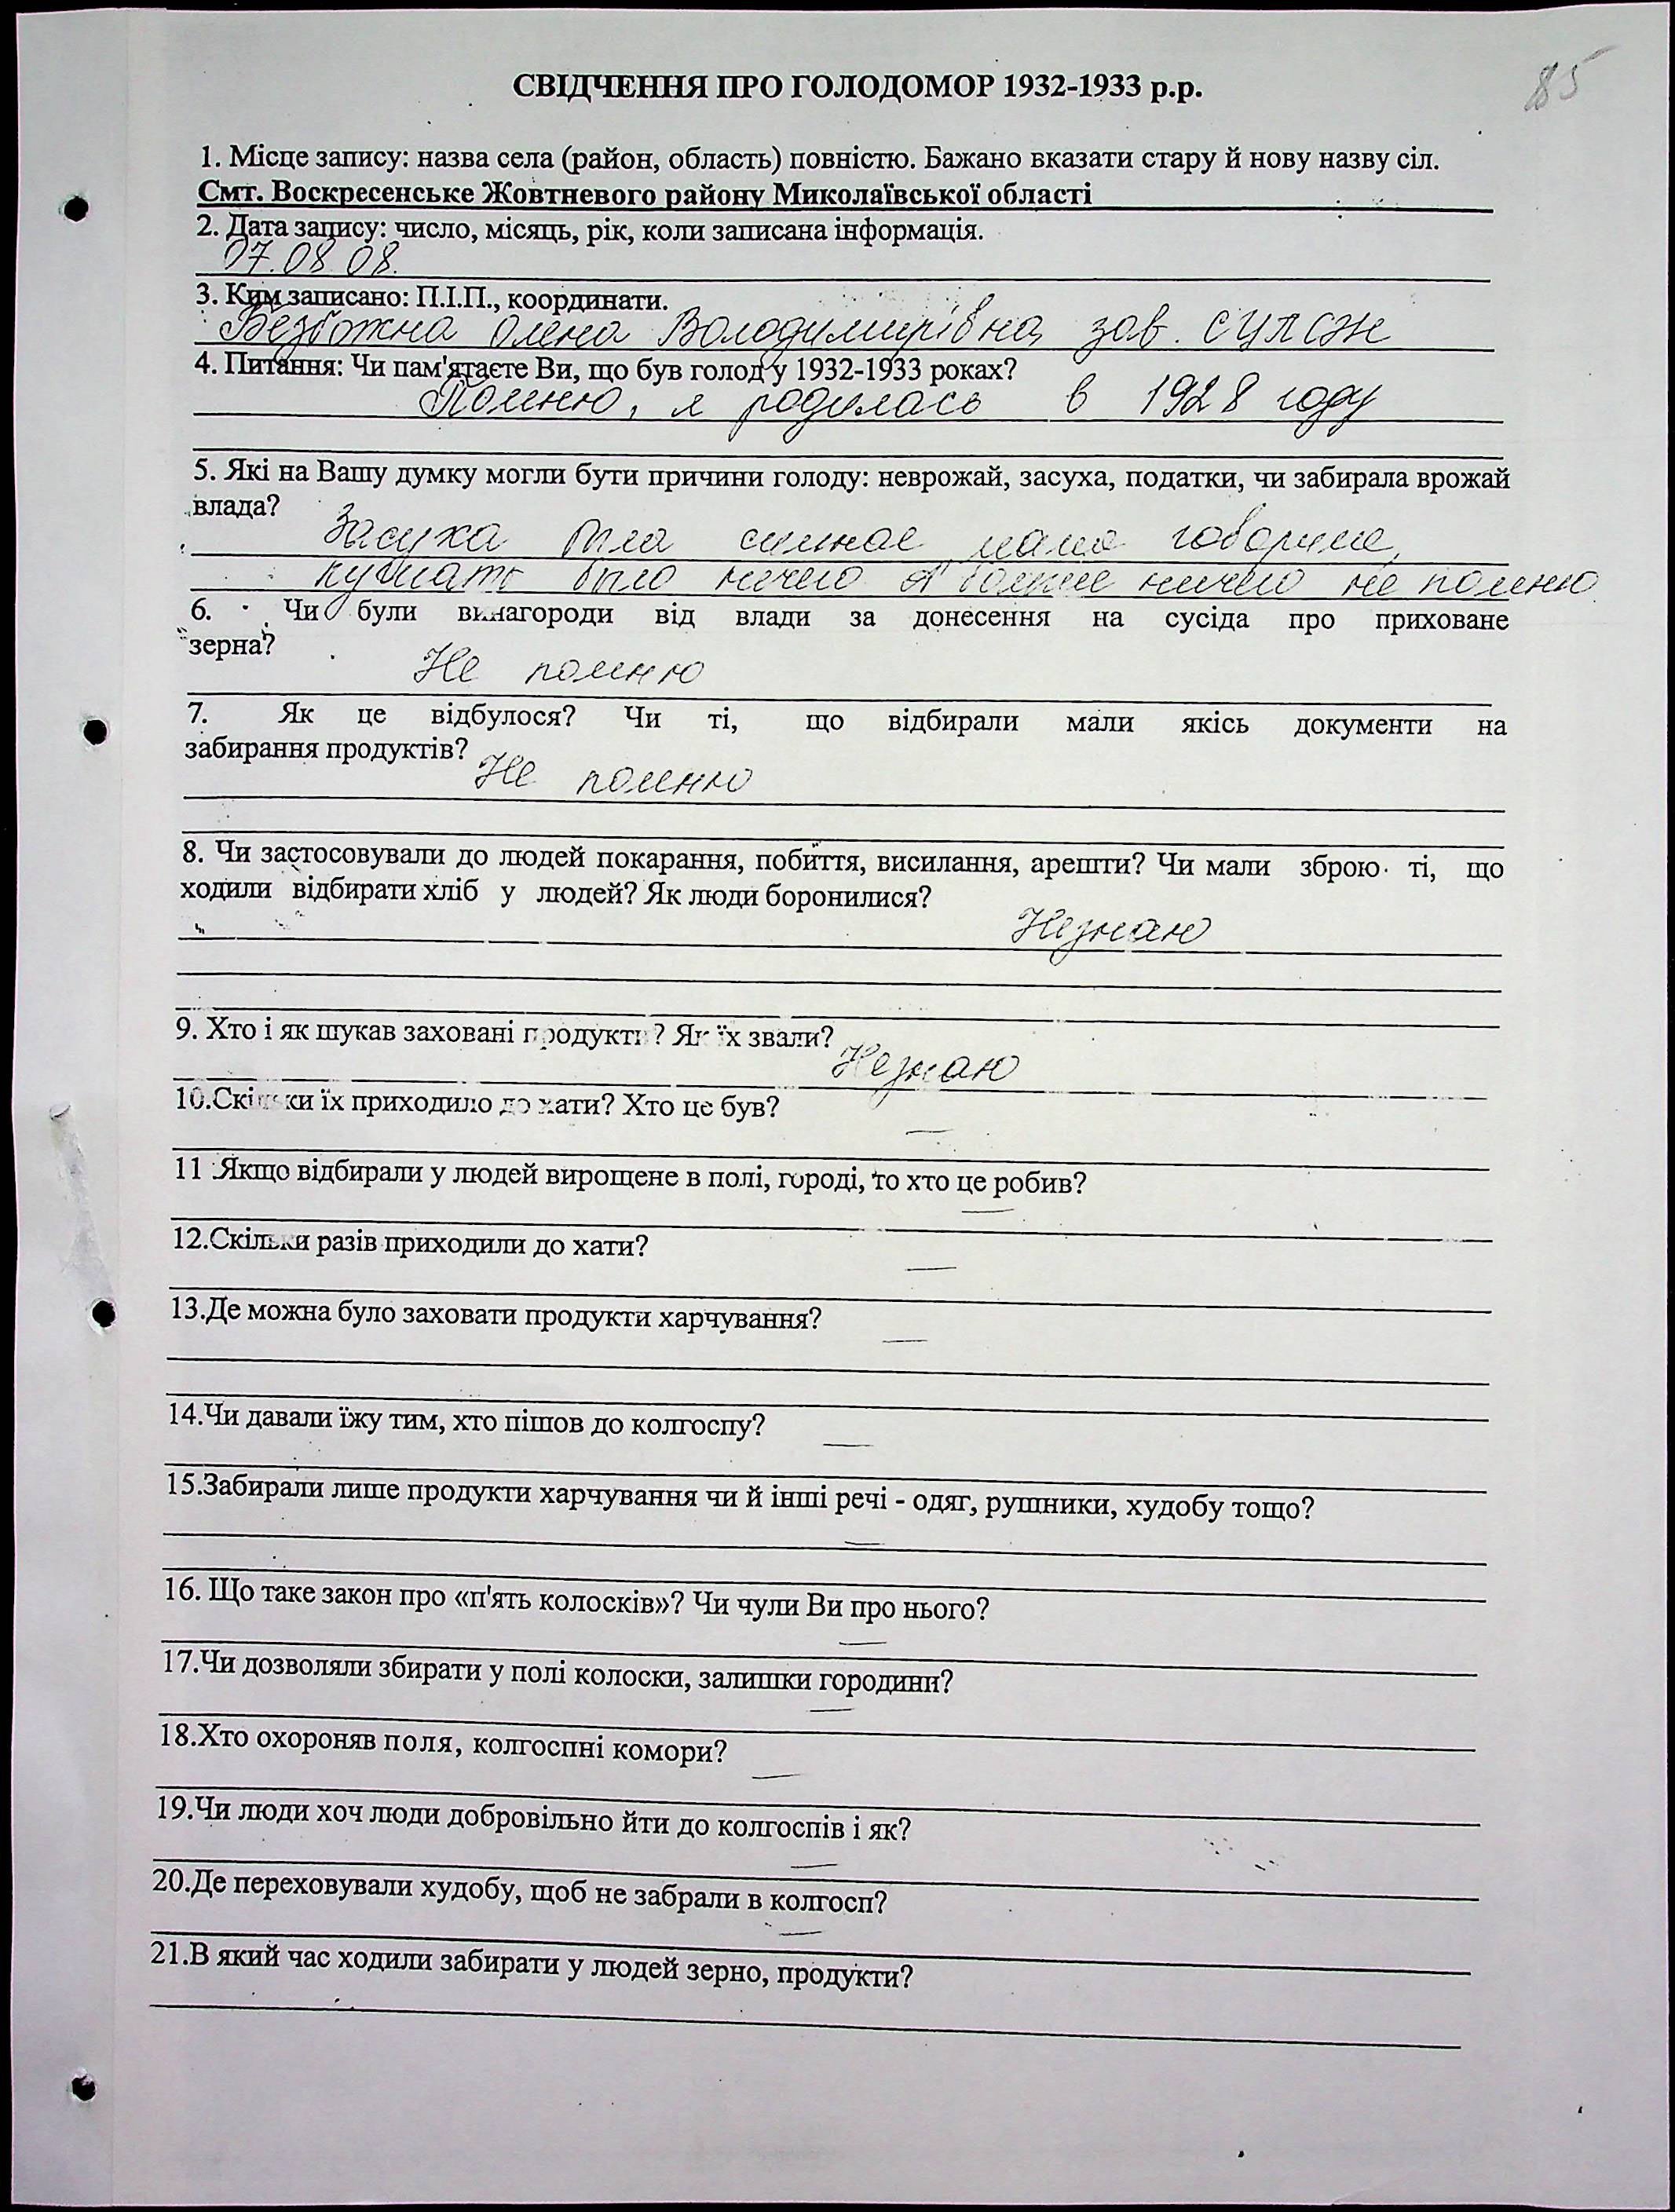 85
СВІДЧЕННЯ ПРО ГОЛОДОМОР 1932-1933 р.р.
1. Місце запису: назва села (район, область) повністю. Бажано вказати стару й нову назву сіл.
Смт. Воскресенське Жовтневого району Миколаївської області
2. Дата запису: число, місяць, рік, коли записана інформація.
07.08 08.
3. Ким записано: П.І.П., координати.
Безбожна Олена Володимирівна, зав.
4. Питання: Чи пам'ятаєте Ви, що був голод у 1932-1933 роках?
Помню, я родилась в 1928 году
5. Які на Вашу думку могли бути причини голоду: неврожай, засуха, податки, чи забирала врожай
влада?
Засуха была сильная мама говорила,
кушать было нечего Я больше ничего не помню
6. Чи були винагороди від влади за донесення на сусіда про приховане
зерна?
Не помню
7. Як це відбулося? Чи ті, що відбирали мали якісь документи на
забирання продуктів?
Не помню
8. Чи застосовували до людей покарання, побиття, висилання, арешти? Чи мали зброю ті, що
ходили відбирати хліб у людей? Як люди боронилися?
Незнаю
9. Хто і як шукав заховані продукти? Як їх звали?
Незнаю
10.Скільки їх приходило до хати? Хто це був?
—
11 .Якщо відбирали у людей вирощене в полі, городі, то хто це робив?
—
12.Скільки разів приходили до хати?
—
13.Де можна було заховати продукти харчування?
—
14.Чи давали їжу тим, хто пішов до колгоспу?
—
15.Забирали лише продукти харчування чи й інші речі - одяг, рушники, худобу тощо?
—
16. Що таке закон про «п'ять колосків»? Чи чули Ви про нього?
—
17.Чи дозволяли збирати у полі колоски, залишки городини?
—
18.Хто охороняв поля, колгоспні комори?
—
19.Чи люди хоч люди добровільно йти до колгоспів і як?
—
20.Де переховували худобу, щоб не забрали в колгосп?
—
21.В який час ходили забирати у людей зерно, продукти?